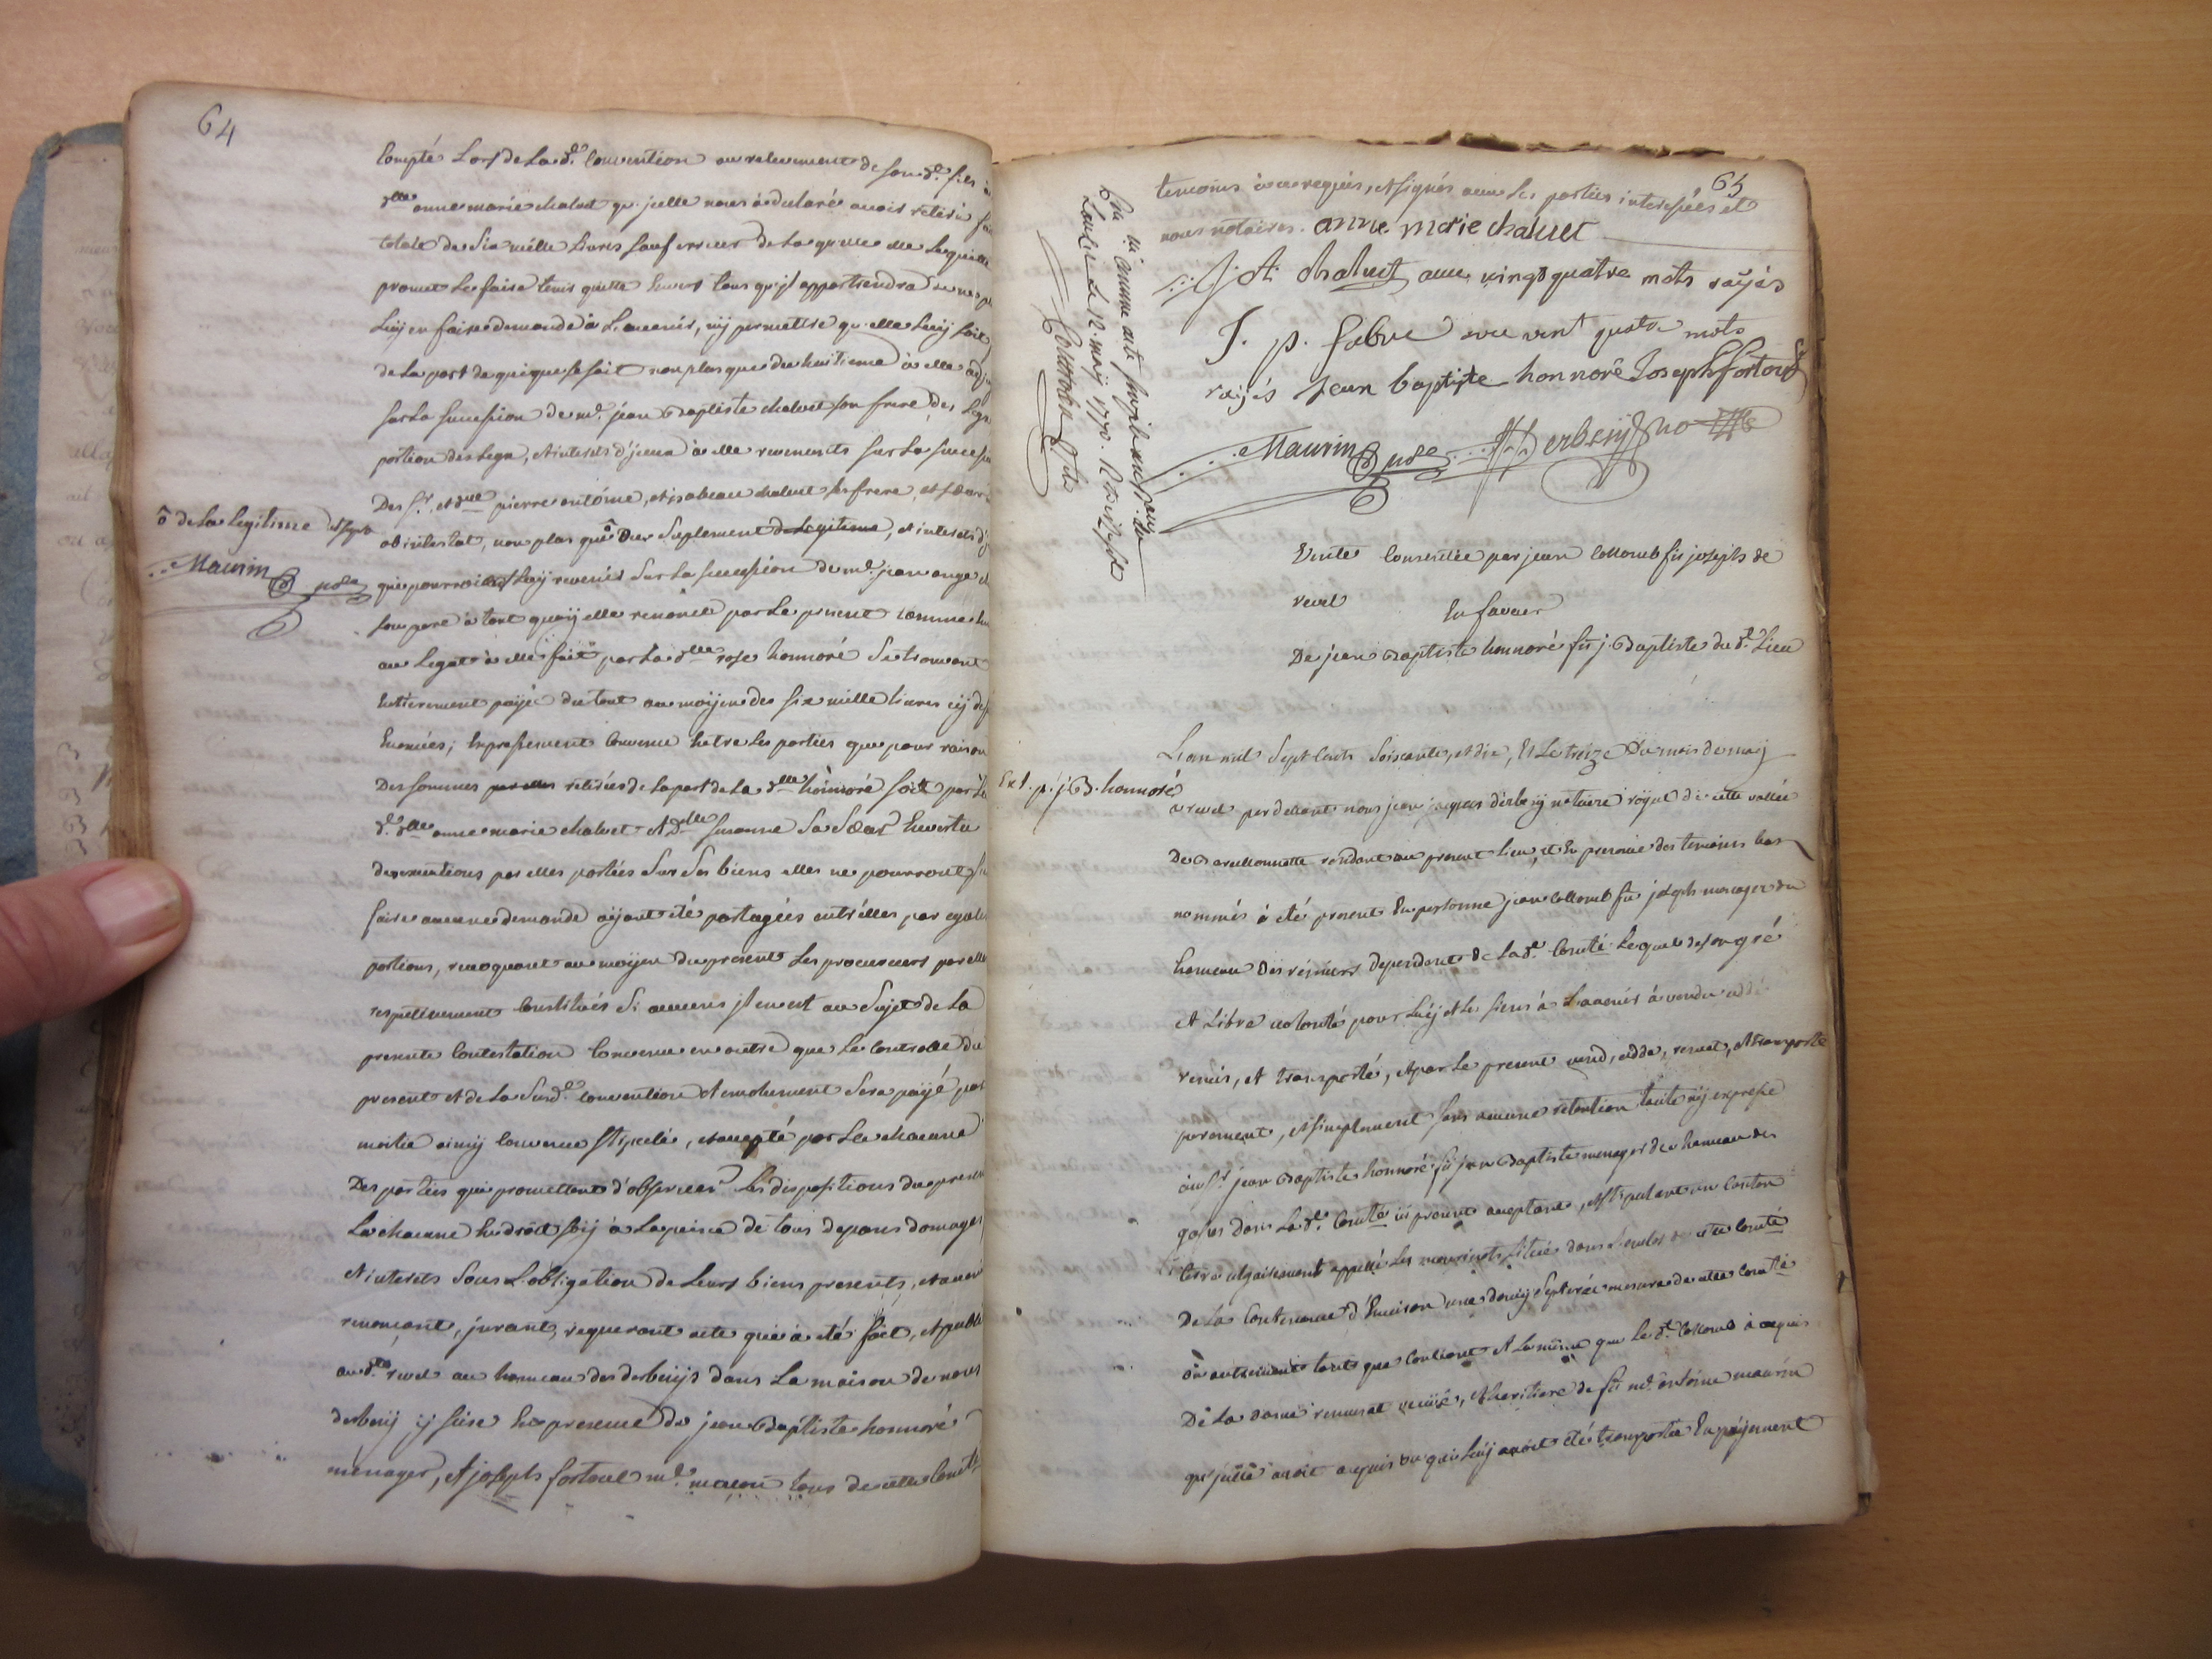 64
Compté Lors de La de. Convention au relevement de son de. fils
dlle anne marie chaluet qu'jcelle nous à declaré avoir retiré
totale de Six mille Livres Sauf erreur de La quelle elle Le quitte
promet Le faire tenir quitte Envers tous qu'jl appartiendra de ne
Luy en faire demande à L'avenir, ny permettre qu'elle Luy soit
de La part de qui que se soit non plus que du huitieme à elle
sur La succession de me. jean Baptiste chaluet son frere, des
portion des Legs, et interets d'jceux à elle revenants sur La
Des Sr. et dlle pierre antoine, et isabeau chaluet ses frere, et soeur
ab intestat, non plus que ô Du Suplement de Legitime, et interets
ô de La Legitime
Maurin nore
qui pourroient Luy revenir Sur La succession de me. jean ange
son pere à tout quoy elle renonce par Le present comme
au Legat à elle fait par La dlle rose honnoré Se trouvant
Entierement payé du tout au moyen des six mille livres cy
Enoncées; Expressement Convenu Entre Les parties que pour raison
Des sommes retirées de La part de La dlle honnoré soit par
de. dlle anne marie chaluet et dlle suzanne Sa Soeur En vertu
des executions par elles portées Sur Ses biens elles ne pourront
faire aucune demande ayant été partagées entr'elles par egales
portions, revoquant au moyen du present Les procureurs par elles
respectivement Constitués Si aucuns jl en est au Sujet de La
presente Contestation Convenu en outre que Le Controlle du
present et de La Susde. convention et emolument Sera payé par
moitié ainsy Convenu Stipulé, et accepté par La chacune
Des parties qui promettent d'observer Les dispositions du present
La chacune En droit soy à La peine de tous depens domages
et interets Sous L'obligation de Leurs biens presents, et avenir
renonçant, jurant, requerant acte qui à eté fait, et publié
aud. revel au hameau des derbesys dans La maison de nous
derbesy y sise En presence de jean Baptiste honnoré
menager, et joseph fortoul me. maçon tous de cette Comté
65
temoins à ce requis, et signés avec Les parties interessées et
nous notaires. anne marie chaluet
J. A. chaluet avec vingt quatre mots rayés
J. p. fabre avec vint quatre mots
rayés jean baptiste honnoré Joseph fortoul
Maurin nore Derbesy no
Leuzet Le 12. may 1770.
Vente Consentie par jean Collomb fu joseph de
revel
En faveur
De jean Baptiste honnoré fu j. Baptiste du d. Lieu
L'an mil Sept Cents Soixante, et dix, Et Le treize Du mois de may
Ext. p. j. B. honnoré
à revel par devant nous jean jacques derbesy notaire royal de cette vallée
De Barcellonnette residant au present Lieu, et En presence des temoins bas
nommés à eté present En personne jean Collomb fu joseph menager du
hameau Des reyniers dependant de La de. Comté Lequel de son gré
et Libre volonté pour Luy et Les siens à L'avenir à vendu cedé
remis, et transporté, et par Le present vend, cede, remet, et transporte
purement, et simplement sans aucune retention tacite ny expresse
au Sr. jean Baptiste honnoré fu jean Baptiste menager du hameau des
gasses dans La de. Comté ici present acceptant, et stipulant un Canton
terre vulgairement appellé Les mourinots situé dans L'enclos de cette Comté
De La Contenance d'Environ une demy Septerée mesure de cette Comté
ou autrement tant que Contient et La même que Le d. Collomb à acquis
De La dame remusat veuve, et heritiere de fu me. antoine maurin
qu'jcelle avoit acquis ou qui Luy avoit eté transportée En payement